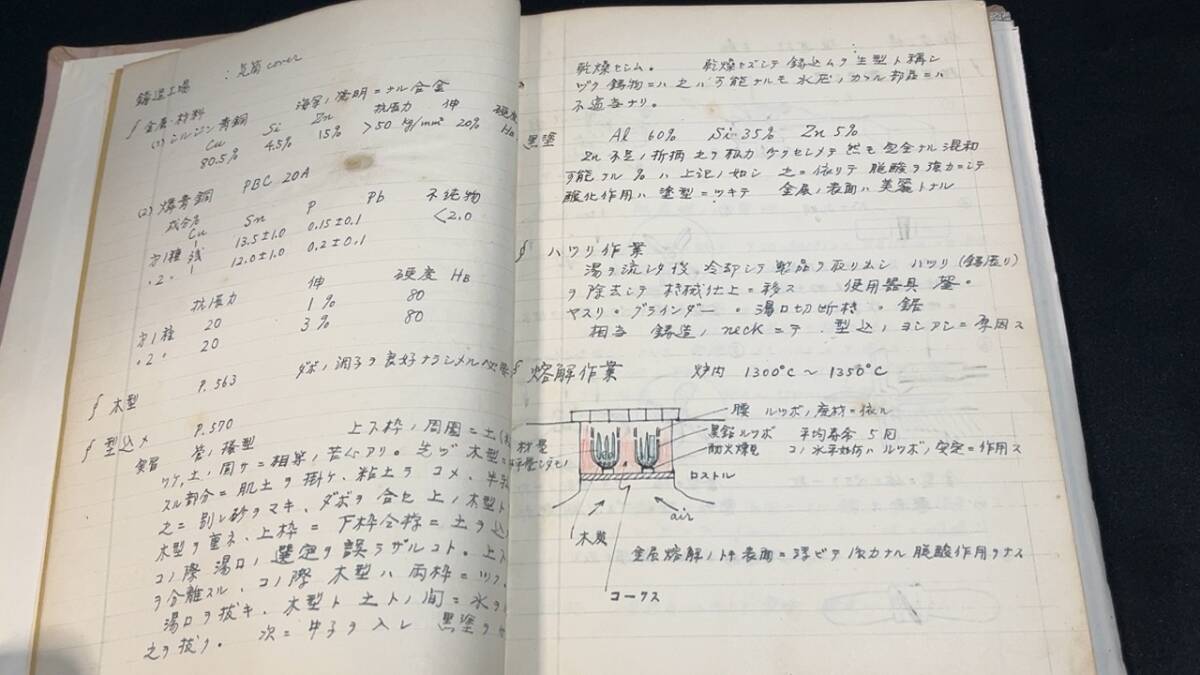 鋳造工場
金属・材料
(1) シルジン青銅
Cu Si Zn 抗張力 伸 硬度
80.5% 4.5% 15% >50 kg/mm² 20% HB
(2) 燐青銅 PBC 20A
成分
Cu Sn P Pb 不純物
才1種 残 13.5±1.0 0.15±0.1 <2.0
〃2〃 12.0±1.0 0.2±0.1
抗張力 伸 硬度 HB
才1種 20 1% 80
〃2〃 20 3% 80
∮木型 P.563 ダボノ調子ヲ良好ナラシメル
∮型込メ P.570
上下枠ノ周囲ニ土
土ノ周サニ相案ノ苦心アリ。先ヅ木型
スル部分ニ肌土ヲ掛ケ、粘土ヲコメ、
之ニ別レ砂ヲマキ、ダボヲ合セ上ノ木型ト
木型ヲ重ネ、上枠ニ下枠仝様ニ土ヲ込
コノ際湯口ノ選定ヲ誤ラザルコト。上下
ヲ分離スル、コノ際木型ハ両枠ニツク、
湯口ヲ抜キ、木型ト土トノ間ニ水ヲ
之ヲ抜ク。次ニ中子ヲ入レ 黒塗ヲ
乾燥セシム。 乾燥セズシテ鋳込ムヲ生型ト稱シ
鋳物ニハ之ハ可能ナルモ水圧ノカカル部品ニハ
不適当ナリ。
黒塗 Al 60% Si 35% Zn 5%
可能ナル%ハ上記ノ如シ 之ニ依リテ脱酸ヲ強力ニシテ
酸化作用ハ塗型ニツキテ 金属ノ表面ハ美麗トナル
∮ハツリ作業
湯ヲ流シタ後冷却シテ製品ヲ取リ出シ ハツリ(鋳張リ)
ヲ除去シテ機械仕上ニ移ス 使用器具 鏨・
ヤスリ・グラインダー・湯口切断機・鋸
相当 鋳造ノneckニテ 型込ノ ニ原因ス
∮熔解作業 炉内 1300°C～1350°C
腰 ルツボノ廃材ニ依ル
黒鉛ルツボ 平均寿命 5回
耐火煉瓦 コノ水平 ハルツボノ安定ニ作用ス
ロストル
air
木炭
金属熔解ノ時表面ニ浮ビテ強力ナル脱酸作用ヲナス
コークス